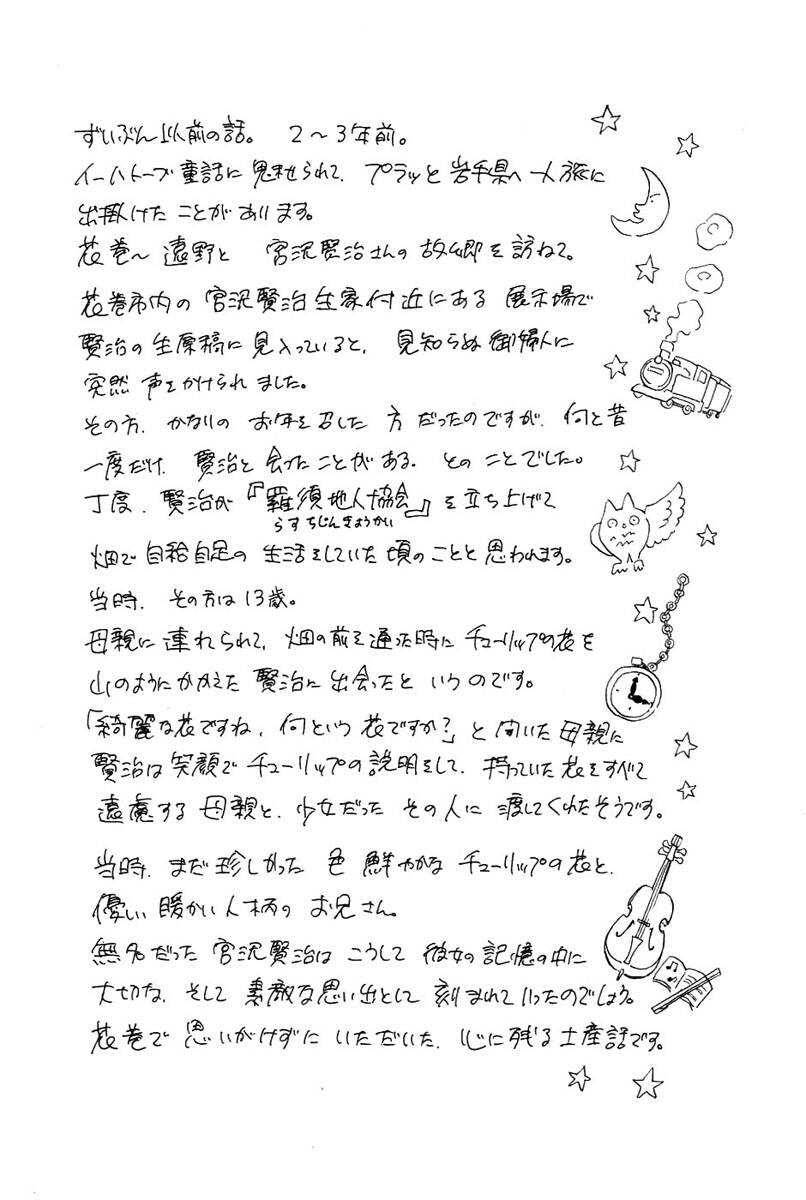 ずいぶん以前の話。 2〜3年前。
イーハトーブ童話に魅せられて、プラッと岩手県へ一人旅に
出掛けたことがあります。
花巻〜遠野と 宮沢賢治さんの故郷を訪ねて。
花巻市内の宮沢賢治生家付近にある 展示場で
賢治の生原稿に見入っていると、見知らぬ御婦人に
突然声をかけられました。
その方、かなりの お年を召した 方だったのですが、何と昔
一度だけ、賢治と会ったことがある、とのことでした。
丁度、賢治が『羅須地人協会』を立ち上げて
らすちじんきょうかい
畑で自給自足の生活をしていた頃のことと思われます。
当時、その方は13歳。
母親に連れられて、畑の前を通った時にチューリップの花を
山のようにかかえた賢治に出会ったというのです。
「綺麗な花ですね、何という花ですか?」と聞いた母親に
賢治は笑顔でチューリップの説明をして、持っていた花をすべて
遠慮する母親と、少女だったその人に渡してくれたそうです。
当時、まだ珍しかった 色鮮やかなチューリップの花と、
優しい暖かい人柄のお兄さん。
無名だった宮沢賢治はこうして彼女の記憶の中に
大切な、そして素敵な思い出として刻まれていったのでしょう。
花巻で思いがけずにいただいた、心に残る土産話です。